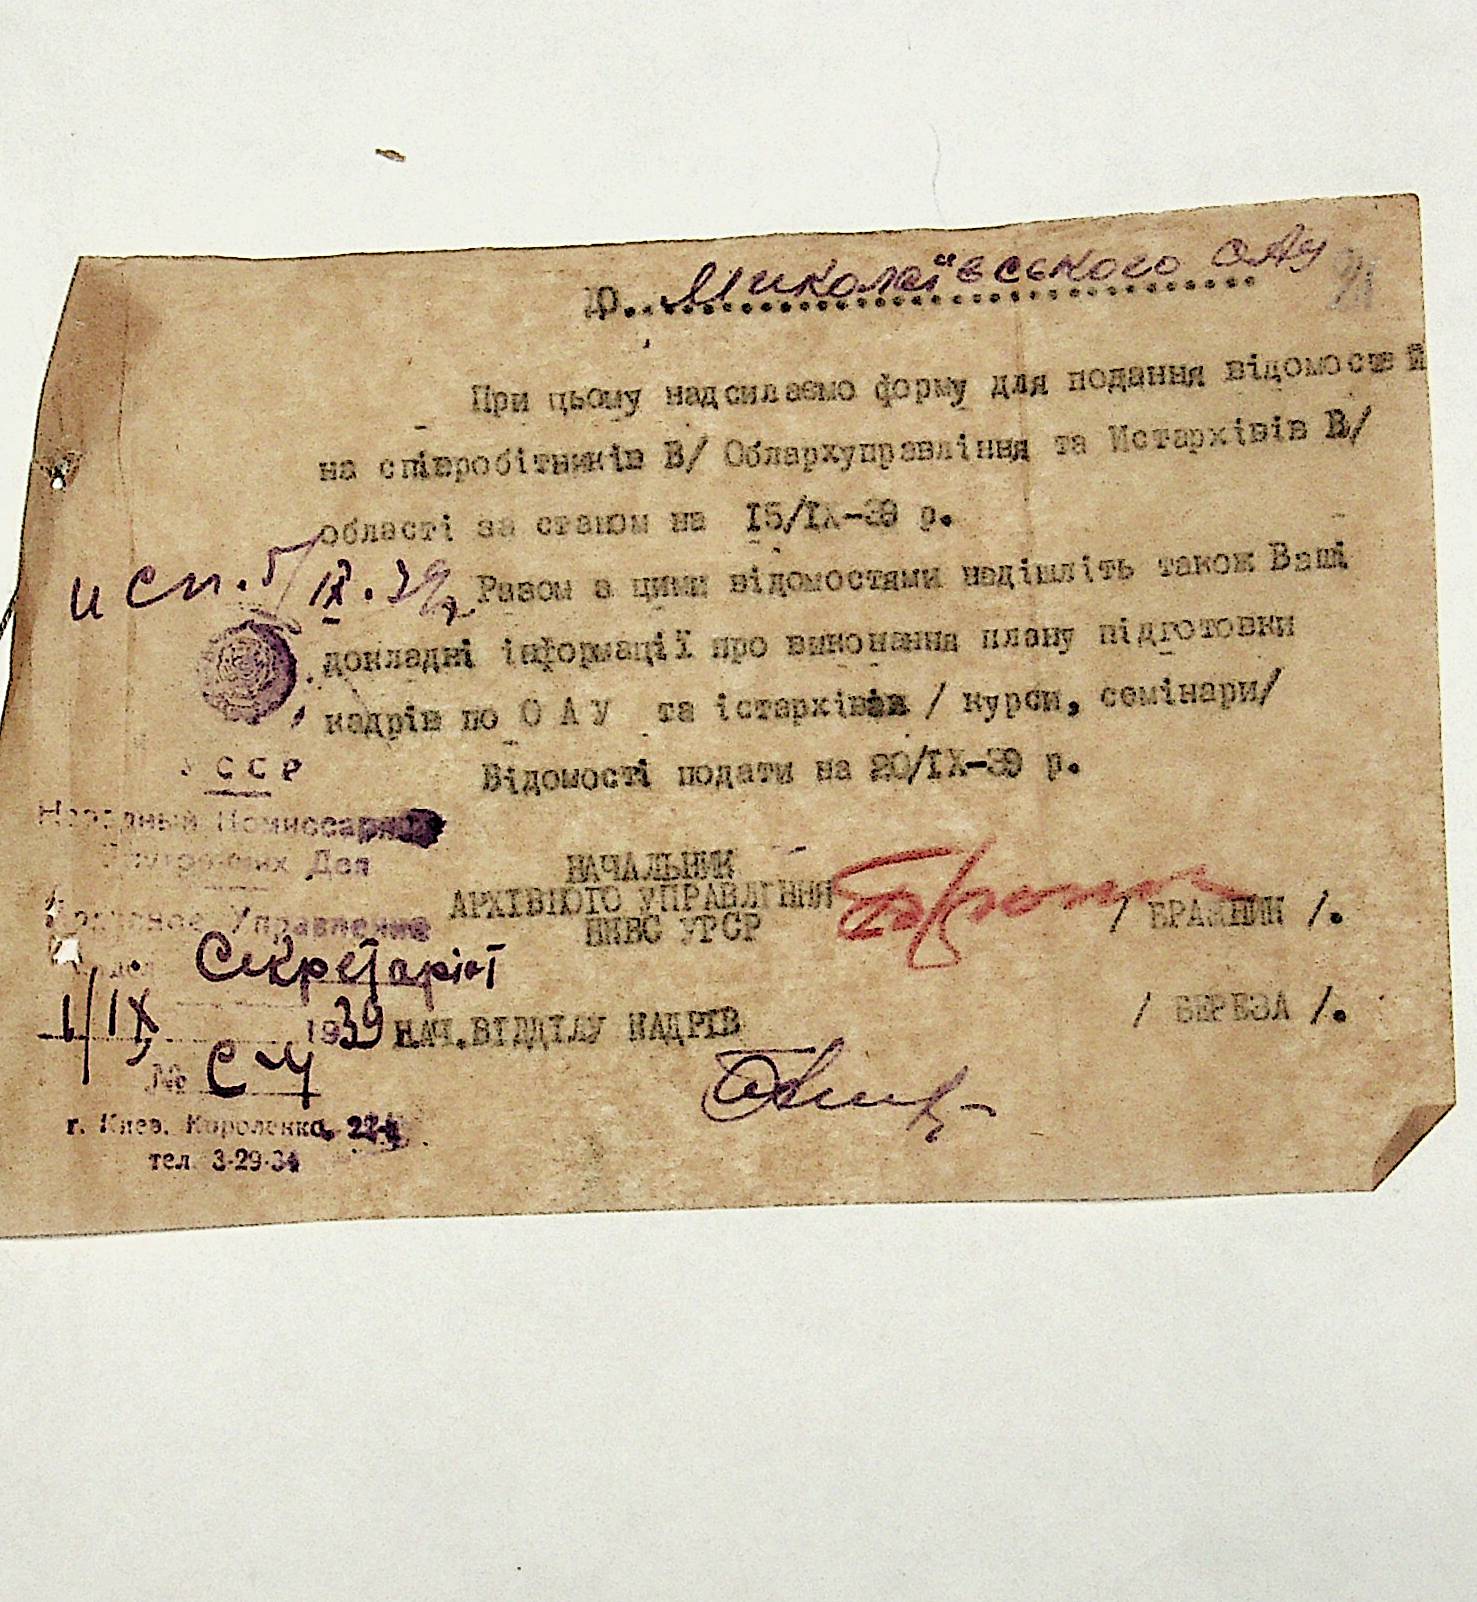 До. Миколаївського ОАУ
При цьому надсилаємо форму для подання відомостей
на співробітників В/ Облархуправління та Істархівів В/
області за станом на 15/IX-39 р.
исп. 5/IX.39
Разом з цими відомостями надішліть також Ваші
докладні інформації про виконання плану підготовки
кадрів по О А У та істархівів / курси, семінари/
УССР
Відомості подати на 20/IX-39 р.
Народный Комиссариат
Внутренних Дел
НАЧАЛЬНИК
АРХІВНОГО УПРАВЛІННЯ
НКВС УРСР / БРАЖНИК /.
Управление
Секретаріат
1/IX 1939
НАЧ.ВІДДІЛУ КАДРІВ / БЕРЕЗА /.
№ С-4
г. Киев, Короленко, 22
тел. 3-29-34